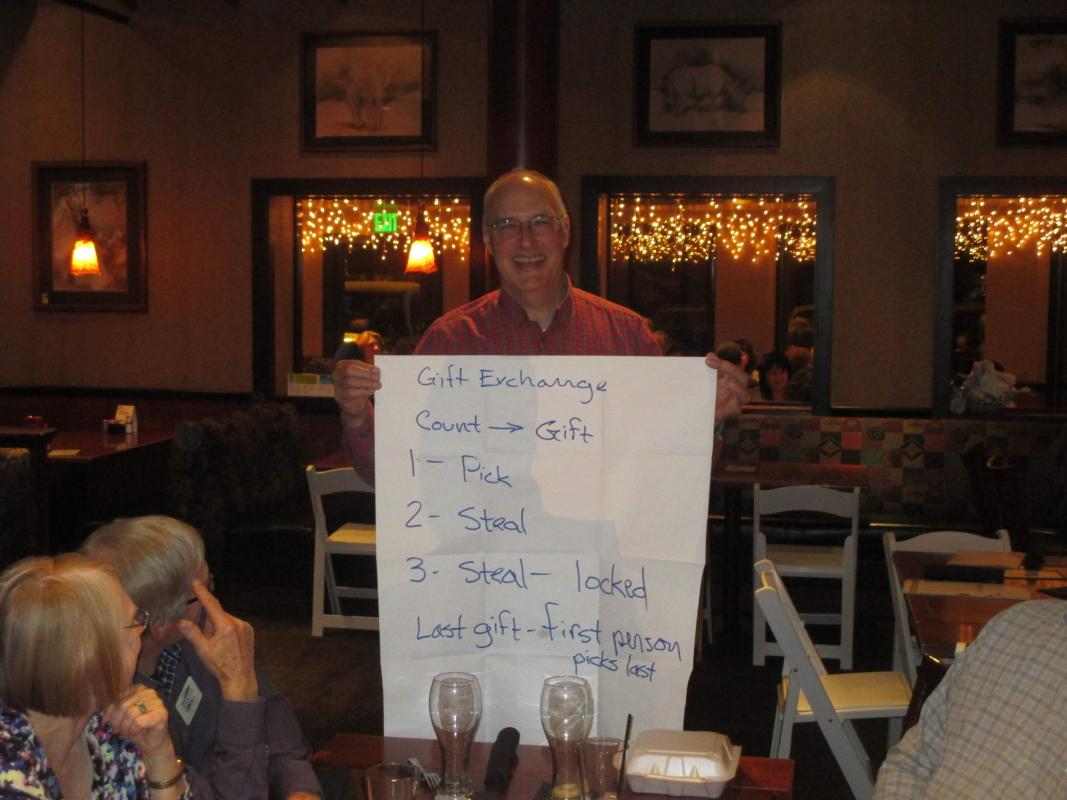 EXIT
Gift Exchange
Count → Gift
1 - Pick
2 - Steal
3 - Steal - locked
Last gift - first person
picks last